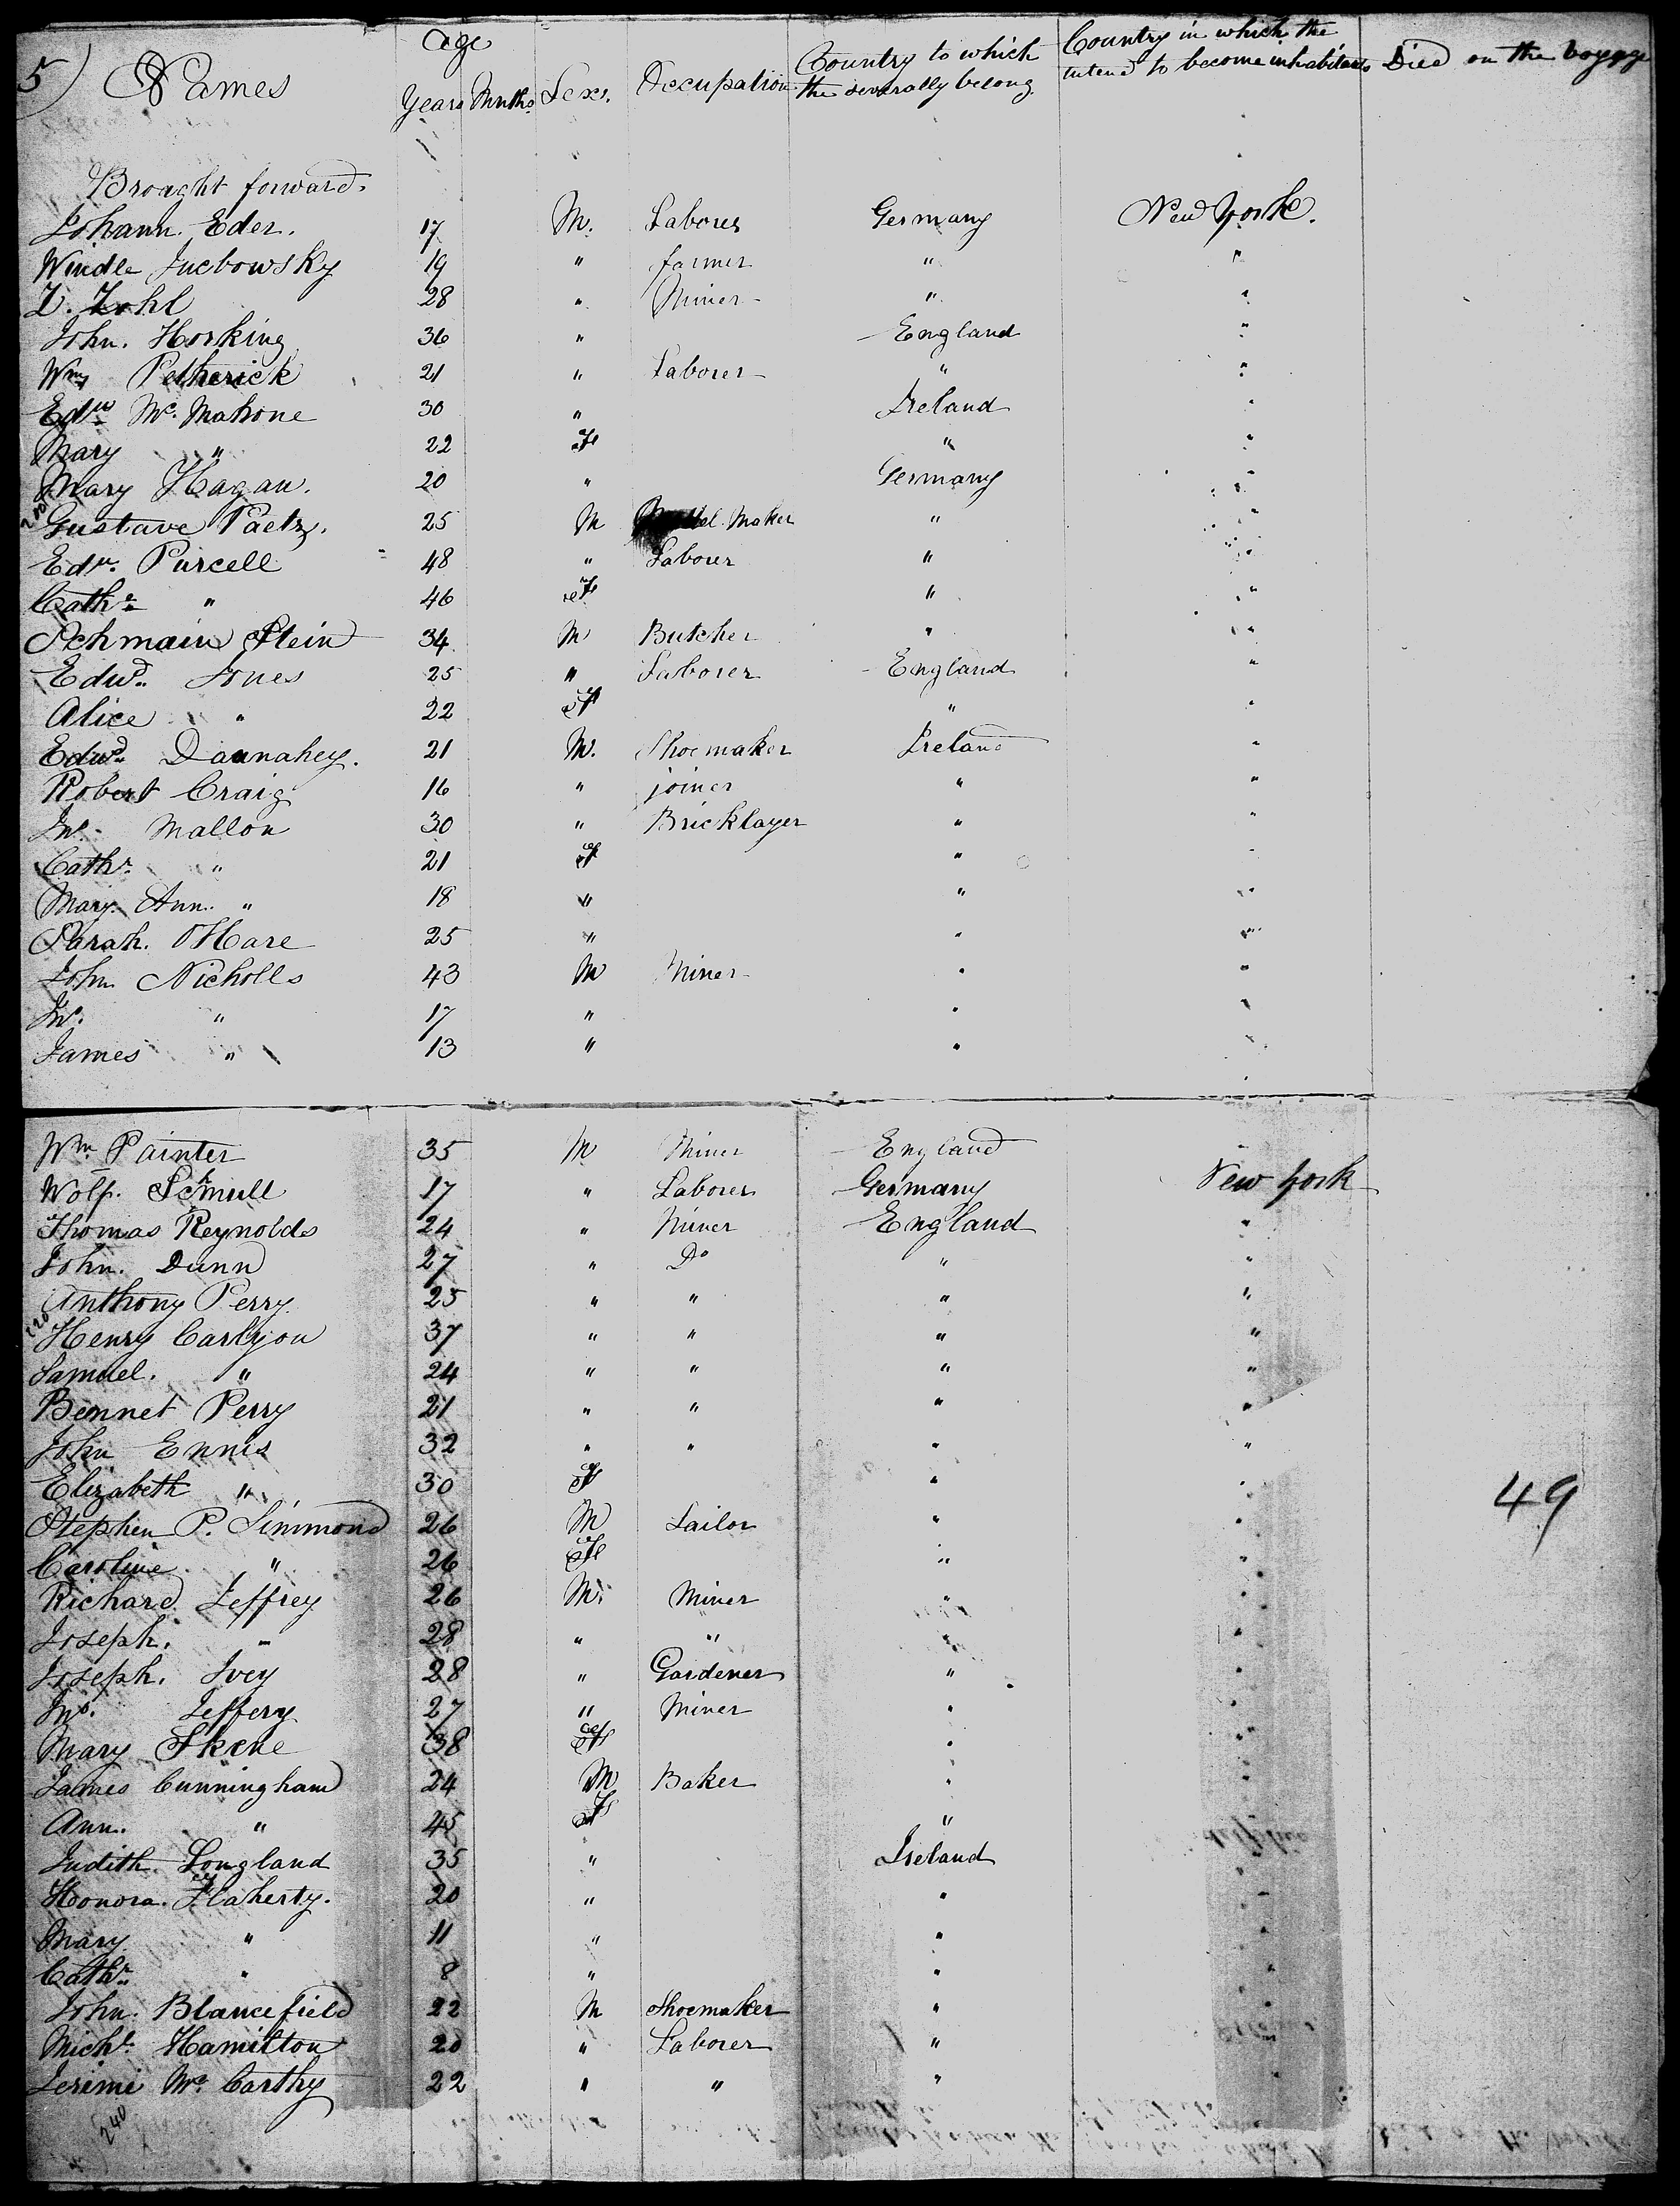 5) Names Age Years Mnths Sex. Occupation Country to which the severally belong Country in which the intend to become inhabitants Died on the voyage
Brought forward.
Johann. Eder. 17 M. Laborer Germany New York.
Windle Jucbowsky 19 " farmer " "
Z. Zohl 28 " Miner " "
John. Horking 36 " England "
Wm Petherick 21 " Laborer " "
Edw Mc. Mahone 30 " Ireland "
Mary " 22 F " "
Mary Hagan. 20 " Germany "
Gustave Paetz. 25 M Maker " "
Edw. Purcell 48 " Labour " "
Cathe " 46 F " "
Schmain Stein 34 M Butcher " "
Edwd. Jones 25 " Laborer England "
Alice " 22 F " "
Edwd Dannahey. 21 M. Shoemaker Ireland "
Robert Craig 16 " joiner " "
Jno. Mallon 30 " Bricklayer " "
Cathr. " 21 F " "
Mary Ann. " 18 " " "
Sarah. OHare 25 " " "
John Nicholls 43 M Miner " "
Jno. " 17 " " "
James " 13 " " "
Wm Painter 35 M Miner England "
Wolf. Schmull 17 " Laborer Germany New York
Thomas Reynolds 24 " Miner England "
John. Dunn 27 " Do " "
Anthony Perry 25 " " " "
220
Henry Carlyon 37 " " " "
Samuel. " 24 " " " "
Bennet Perry 21 " " " "
John Ennis 32 " " " "
Elizabeth " 30 F " "
49
Stephen P. Simmond 26 M Sailor " "
Caroline " 26 F " "
Richard Jeffrey 26 M. Miner " "
Joseph. " 28 " " " "
Joseph. Ivey 28 " Gardener " "
Jno. Jeffery 27 " Miner " "
Mary Skene 38 F " "
James Cunningham 24 M Baker " "
Ann. " 45 F " "
Judith. Longland 35 " Ireland "
Honora. Flaherty. 20 " " "
Mary " 11 " " "
Cathr " 8 " " "
John. Blancefield 22 M Shoemaker " "
Michl. Hamilton 20 " Laborer " "
Jerimi Mc. Carthy 22 " " " "
240